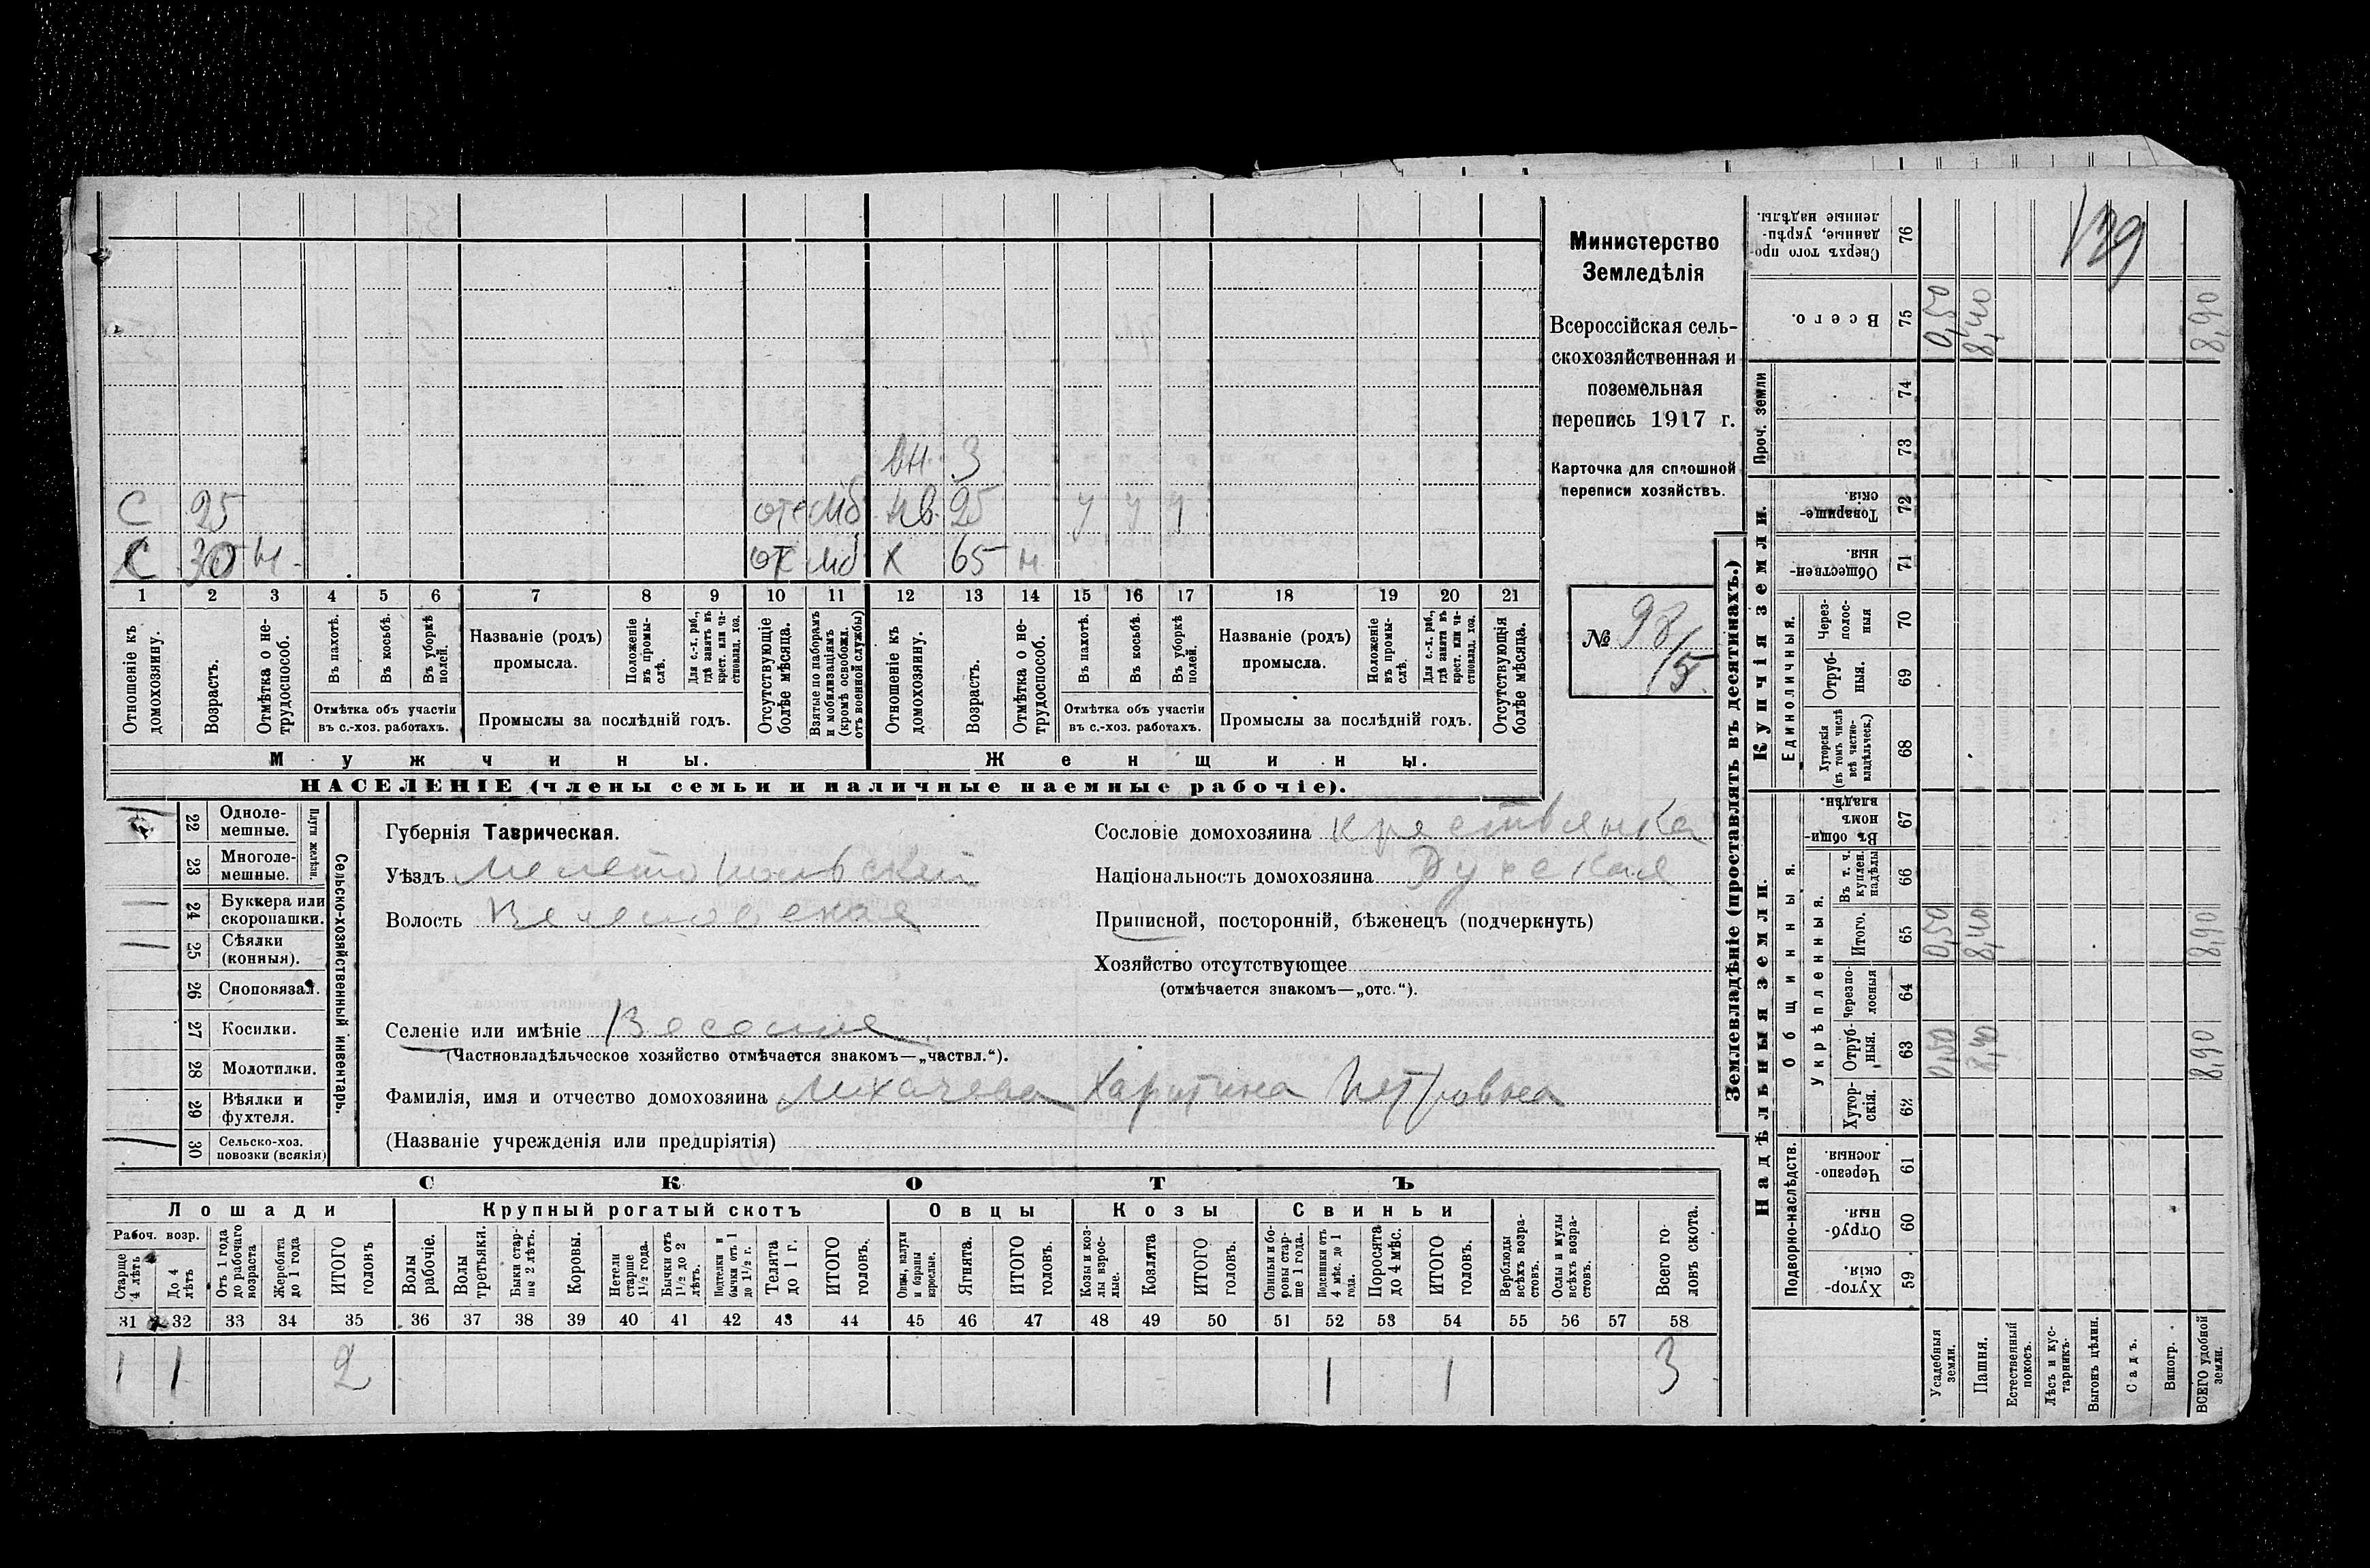 С 25 отс мб
С 30 н отс мб
вн. 3
нв. 25 у у у
Х 65 н
1 2 3 4 5 6 7 8 9 10 11 12 13 14 15 16 17 18 19 20 21
Отношеніе къ домохозяину.
Возрастъ.
Отмѣтка о не-
трудоспособ.
Въ пахотѣ.
Въ косьбѣ.
Въ уборкѣ полей.
Отмѣтка объ участіи
въ с.-хоз. работахъ.
Названіе (родъ)
промысла.
Положеніе въ промы-
слѣ.
Для с.-х. раб.,
гдѣ занятъ въ
крест. или ча-
стновлад. хоз.
Промыслы за послѣдній годъ.
Отсутствующіе
болѣе мѣсяца.
Взятые по наборамъ
и мобилизаціямъ
(кромѣ освобожд.
отъ военной службы)
Отношеніе къ
домохозяину.
Возрастъ.
Отмѣтка о не-
трудоспособ.
Въ пахотѣ.
Въ косьбѣ.
Въ уборкѣ
полей.
Отмѣтка объ участіи
въ с.-хоз. работахъ.
Названіе (родъ)
промысла.
Положеніе
въ промы-
слѣ.
Для с.-х. раб.,
гдѣ занята въ
крест. или ча-
стновлад. хоз.
Промыслы за послѣдній годъ.
Отсутствующія
болѣе мѣсяца.
Мужчины.
Женщины.
НАСЕЛЕНІЕ (члены семьи и наличные наемные рабочіе).
Министерство
Земледѣлія
Всероссійская сель-
скохозяйственная и
поземельная
перепись 1917 г.
Карточка для сплошной
переписи хозяйствъ.
№ 98/15
22 Одноле-
мешные.
23 Многоле-
мешные.
Плуги желѣзн.
24 Буккера или
скоропашки.
25 Сѣялки
(конныя).
26 Сноповязал.
27 Косилки.
28 Молотилки.
29 Вѣялки и
фухтеля.
30 Сельско-хоз.
повозки (всякія)
Сельско-хозяйственный инвентарь.
Губернія Таврическая.
Уѣздъ Мелитопольскій
Волость Веселовская
Сословіе домохозяина крестьянка
Національность домохозяина Русская
Приписной, посторонній, бѣженецъ (подчеркнуть)
Хозяйство отсутствующее
(отмѣчается знакомъ—„отс.“).
Селеніе или имѣніе Веселое
(Частновладѣльческое хозяйство отмѣчается знакомъ—„частвл.“).
Фамилія, имя и отчество домохозяина Лихачева Харитина Петровна
(Названіе учрежденія или предпріятія)
СКОТЪ
Лошади
Крупный рогатый скотъ
Овцы
Козы
Свиньи
Рабоч. возр.
Старше
4 лѣтъ
До 4
лѣтъ
Отъ 1 года
до рабочаго
возраста
Жеребята
до 1 года
ИТОГО
головъ
Волы
рабочіе.
Волы
третьяки.
Быки стар-
ше 2 лѣтъ.
Коровы.
Нетели
старше
1½ года.
Бычки отъ
1½ до 2
лѣтъ.
Подтелки и
бычки отъ 1
до 1½ г.
Телята
до 1 г.
ИТОГО
головъ.
Овцы, валухи
и бараны
взрослые.
Ягнята.
ИТОГО
головъ.
Козы и коз-
лы взрос-
лые.
Козлята
ИТОГО
головъ.
Свиньи и бо-
ровы стар-
ше 1 года.
Подсвинки отъ
4 мѣс. до 1
года.
Поросята
до 4 мѣс.
ИТОГО
головъ.
Верблюды
всѣхъ возра-
стовъ.
Ослы и мулы
всѣхъ возра-
стовъ.
Всего го-
ловъ скота.
31 32 33 34 35 36 37 38 39 40 41 42 43 44 45 46 47 48 49 50 51 52 53 54 55 56 57 58
1 1 2 1 1 3
Землевладѣніе (проставлять въ десятинахъ.)
Купчія земли.
Надѣльныя земли.
Проч. земли
Единоличныя.
Общинныя.
Укрѣпленныя.
Подворно-наслѣдств.
Сверхъ того про-
данные, укрѣп-
ленные надѣлы.
76
139
Всего.
75 0,50 8,40 8,90
74
73
Товарище-
скія.
72
Обществен-
ныя.
71
Через-
полос-
ныя
70
Отруб-
ныя.
69
Хуторскія
(въ томъ числѣ
всѣ частно-
владѣльческ.)
68
Въ общин-
номъ
владѣн.
67
Въ т. ч.
куплен.
надѣлы
66
Итого.
65 0,50 8,40 8,90
Черезпо-
лосныя
64
Отруб-
ныя.
63 0,50 8,40 8,90
Хутор-
скія.
62
Черезпо-
лосныя.
61
Отруб-
ныя.
60
Хутор-
скія.
59
Усадебныя
земли.
Пашня.
Естественный
покосъ.
Лѣсъ и кус-
тарникъ.
Выгонъ цѣлин.
Садъ.
Виногр.
ВСЕГО удобной
земли.